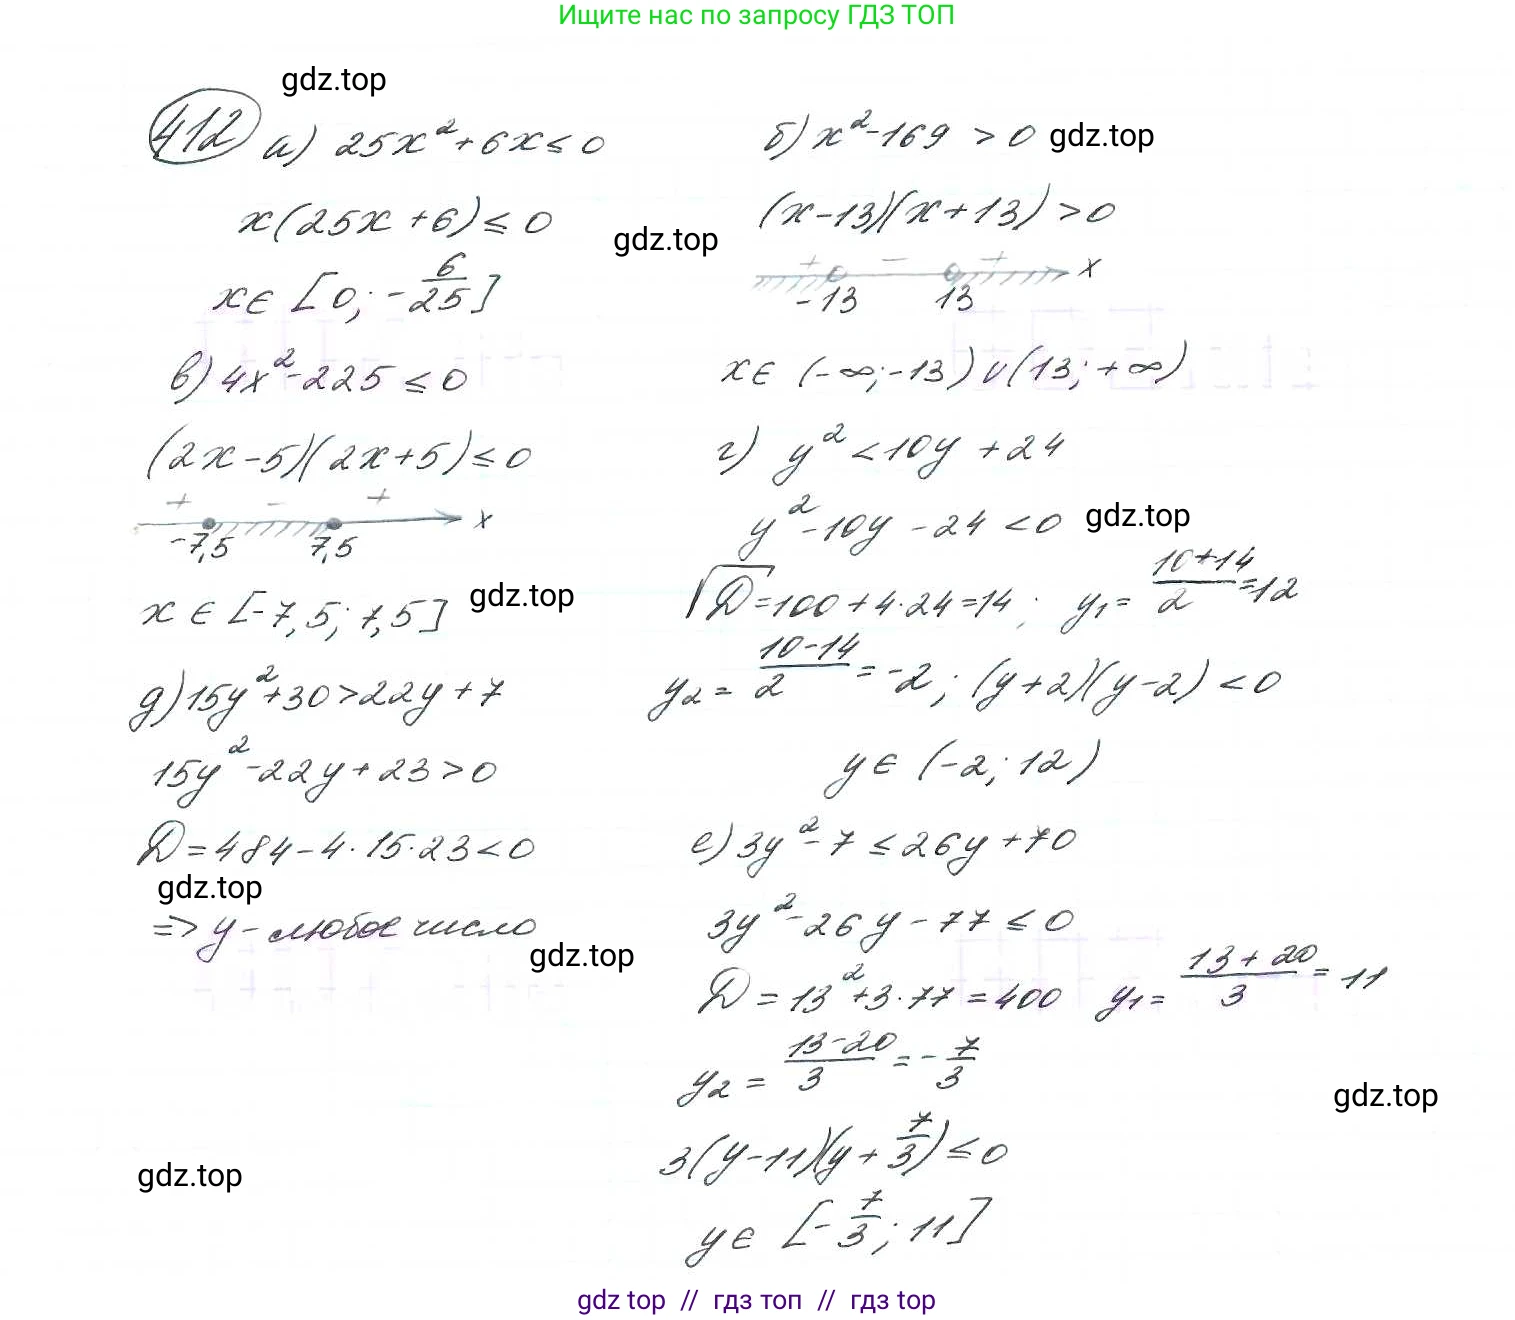 Ищите нас по запросу ГДЗ ТОП
gdz.top
412 а) 25x² + 6x ≤ 0
x(25x + 6) ≤ 0
x ∈ [0; -6/25]
б) x² - 169 > 0 gdz.top
(x - 13)(x + 13) > 0
gdz.top
+ - + x
-13 13
x ∈ (-∞; -13) ∪ (13; +∞)
в) 4x² - 225 ≤ 0
(2x - 5)(2x + 5) ≤ 0
+ - + x
-7,5 7,5
x ∈ [-7,5; 7,5] gdz.top
г) y² < 10y + 24
y² - 10y - 24 < 0 gdz.top
√D = 100 + 4·24 = 14; y₁ = (10+14)/2 = 12
y₂ = (10-14)/2 = -2; (y+2)(y-2) < 0
y ∈ (-2; 12)
д) 15y² + 30 > 22y + 7
15y² - 22y + 23 > 0
D = 484 - 4·15·23 < 0
gdz.top
=> y - любое число
gdz.top
е) 3y² - 7 ≤ 26y + 70
3y² - 26y - 77 ≤ 0
D = 13² + 3·77 = 400 y₁ = (13+20)/3 = 11
y₂ = (13-20)/3 = -7/3
gdz.top
3(y - 11)(y + 7/3) ≤ 0
gdz.top
y ∈ [-7/3; 11]
gdz top // гдз топ // гдз top